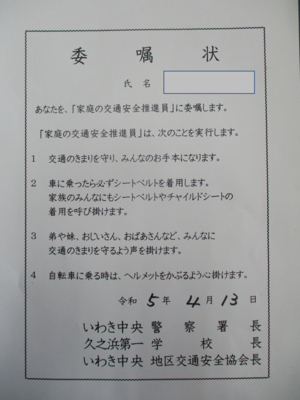 委嘱状
氏名
あなたを、「家庭の交通安全推進員」に委嘱します。
「家庭の交通安全推進員」は、次のことを実行します。
1 交通のきまりを守り、みんなのお手本になります。
2 車に乗ったら必ずシートベルトを着用します。
家族のみんなにもシートベルトやチャイルドシートの
着用を呼び掛けます。
3 弟や妹、おじいさん、おばあさんなど、みんなに
交通のきまりを守るよう声を掛けます。
4 自転車に乗る時は、ヘルメットをかぶるよう心掛けます。
令和5年4月13日
いわき中央警察署長
久之浜第一学校長
いわき中央地区交通安全協会長